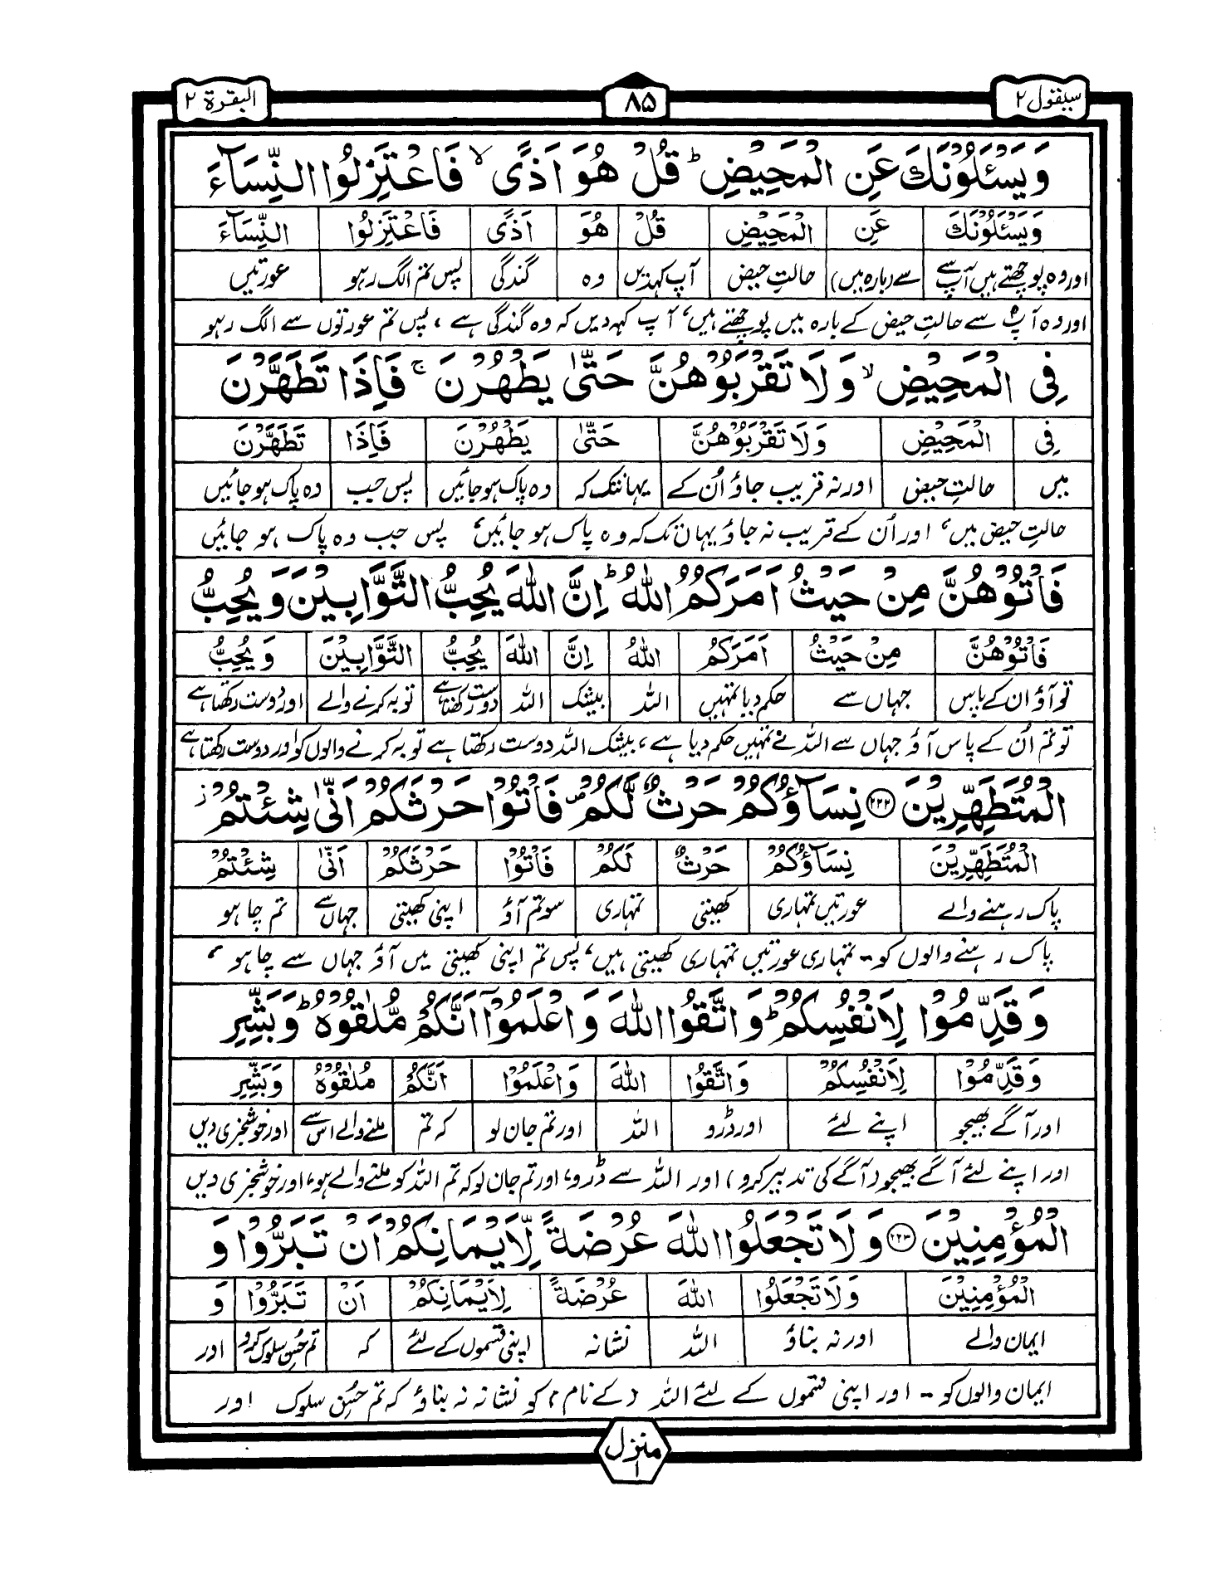 سيقول ٢ ٨٥ البقرة ٢
وَيَسْـَٔلُوْنَكَ عَنِ الْمَحِيْضِ ؕ قُلْ هُوَ اَذًى ۙ فَاعْتَزِلُوا النِّسَآءَ
وَيَسْـَٔلُوْنَكَ عَنِ الْمَحِيْضِ قُلْ هُوَ اَذًى فَاعْتَزِلُوا النِّسَآءَ
اور وہ پوچھتے ہیں آپ سے سے (بارہ میں) حالتِ حیض آپ کہدیں وہ گندگی پس تم الگ رہو عورتیں
اور وہ آپ سے حالتِ حیض کے بارہ میں پوچھتے ہیں، آپ کہہ دیں کہ وہ گندگی ہے ، پس تم عورتوں سے الگ رہو
فِى الْمَحِيْضِ ۙ وَلَا تَقْرَبُوْهُنَّ حَتّٰى يَطْهُرْنَ ۚ فَاِذَا تَطَهَّرْنَ
فِى الْمَحِيْضِ وَلَا تَقْرَبُوْهُنَّ حَتّٰى يَطْهُرْنَ فَاِذَا تَطَهَّرْنَ
میں حالتِ حیض اور نہ قریب جاؤ اُن کے یہانتک کہ وہ پاک ہو جائیں پس جب وہ پاک ہو جائیں
حالتِ حیض میں، اور اُن کے قریب نہ جاؤ یہاں تک کہ وہ پاک ہو جائیں، پس جب وہ پاک ہو جائیں
فَاْتُوْهُنَّ مِنْ حَيْثُ اَمَرَكُمُ اللّٰهُ ؕ اِنَّ اللّٰهَ يُحِبُّ التَّوَّابِيْنَ وَيُحِبُّ
فَاْتُوْهُنَّ مِنْ حَيْثُ اَمَرَكُمُ اللّٰهُ اِنَّ اللّٰهَ يُحِبُّ التَّوَّابِيْنَ وَيُحِبُّ
تو آؤ ان کے پاس جہاں سے حکم دیا تمہیں اللہ بیشک اللہ دوست رکھتا ہے توبہ کرنے والے اور دوست رکھتا ہے
تو تم اُن کے پاس آؤ جہاں سے اللہ نے تمہیں حکم دیا ہے ، بیشک اللہ دوست رکھتا ہے توبہ کرنے والوں کو اور دوست رکھتا ہے
الْمُتَطَهِّرِيْنَ ﴿٢٢٢﴾ نِسَآؤُكُمْ حَرْثٌ لَّكُمْ ۪ فَاْتُوْا حَرْثَكُمْ اَنّٰى شِئْتُمْ ؗ
الْمُتَطَهِّرِيْنَ نِسَآؤُكُمْ حَرْثٌ لَكُمْ فَاْتُوْا حَرْثَكُمْ اَنّٰى شِئْتُمْ
پاک رہنے والے عورتیں تمہاری کھیتی تمہاری سو تم آؤ اپنی کھیتی جہاں سے تم چاہو
پاک رہنے والوں کو - تمہاری عورتیں تمہاری کھیتی ہیں، پس تم اپنی کھیتی میں آؤ جہاں سے چاہو ،
وَقَدِّمُوْا لِاَنْفُسِكُمْ ؕ وَاتَّقُوا اللّٰهَ وَاعْلَمُوْٓا اَنَّكُمْ مُّلٰقُوْهُ ؕ وَبَشِّرِ
وَقَدِّمُوْا لِاَنْفُسِكُمْ وَاتَّقُوا اللّٰهَ وَاعْلَمُوْٓا اَنَّكُمْ مُلٰقُوْهُ وَبَشِّرِ
اور آگے بھیجو اپنے لئے اور ڈرو اللہ اور تم جان لو کہ تم ملنے والے اس سے اور خوشخبری دیں
اور اپنے لئے آگے بھیجو (آگے کی تدبیر کرو) اور اللہ سے ڈرو، اور تم جان لو کہ تم اللہ کو ملنے والے ہو، اور خوشخبری دیں
الْمُؤْمِنِيْنَ ﴿٢٢٣﴾ وَلَا تَجْعَلُوا اللّٰهَ عُرْضَةً لِّاَيْمَانِكُمْ اَنْ تَبَرُّوْا وَ
الْمُؤْمِنِيْنَ وَلَا تَجْعَلُوا اللّٰهَ عُرْضَةً لِاَيْمَانِكُمْ اَنْ تَبَرُّوْا وَ
ایمان والے اور نہ بناؤ اللہ نشانہ اپنی قسموں کے لئے کہ تم حُسنِ سلوک کرو اور
ایمان والوں کو - اور اپنی قسموں کے لئے اللہ (کے نام) کو نشانہ نہ بناؤ کہ تم حُسنِ سلوک اور
منزل ١